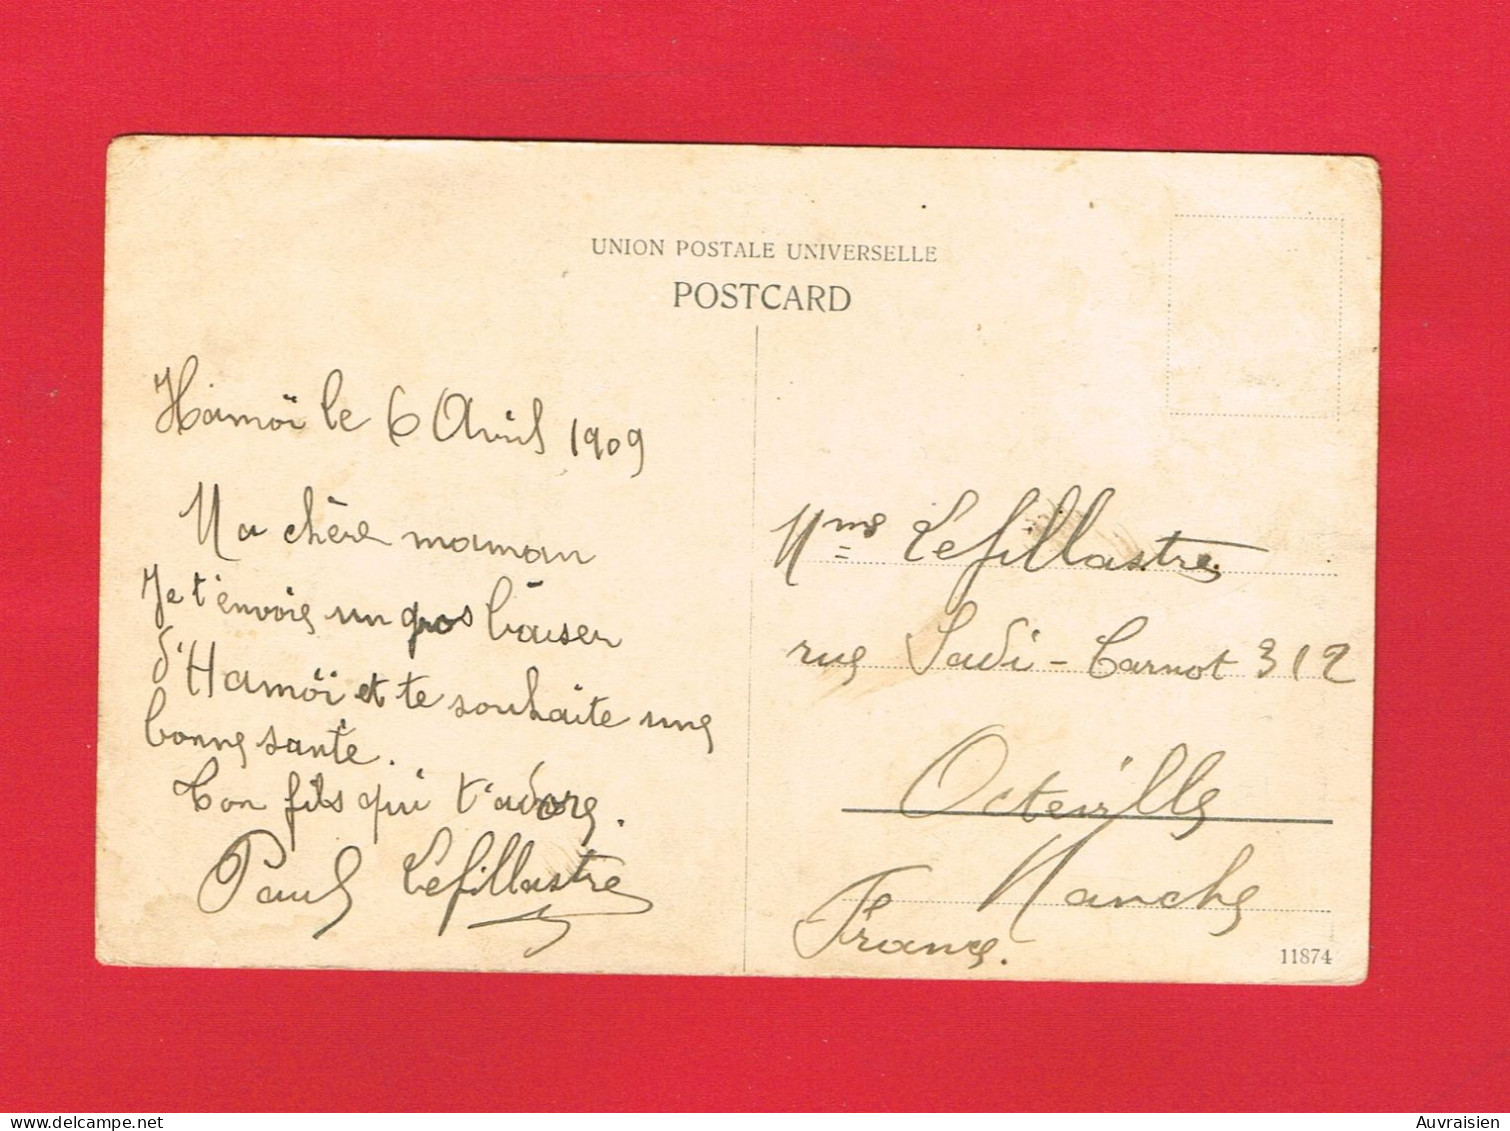 UNION POSTALE UNIVERSELLE
POSTCARD
Hanoï le 6 Avril 1909
Ma chère maman
Je t'envoie un gros baiser
d'Hanoï et te souhaite une
bonne santé.
Ton fils qui t'adore.
Paul Lefillastre
Mme Lefillastre
rue Sadi-Carnot 312
Octeville
Manche
France.
11874
Auvraisien